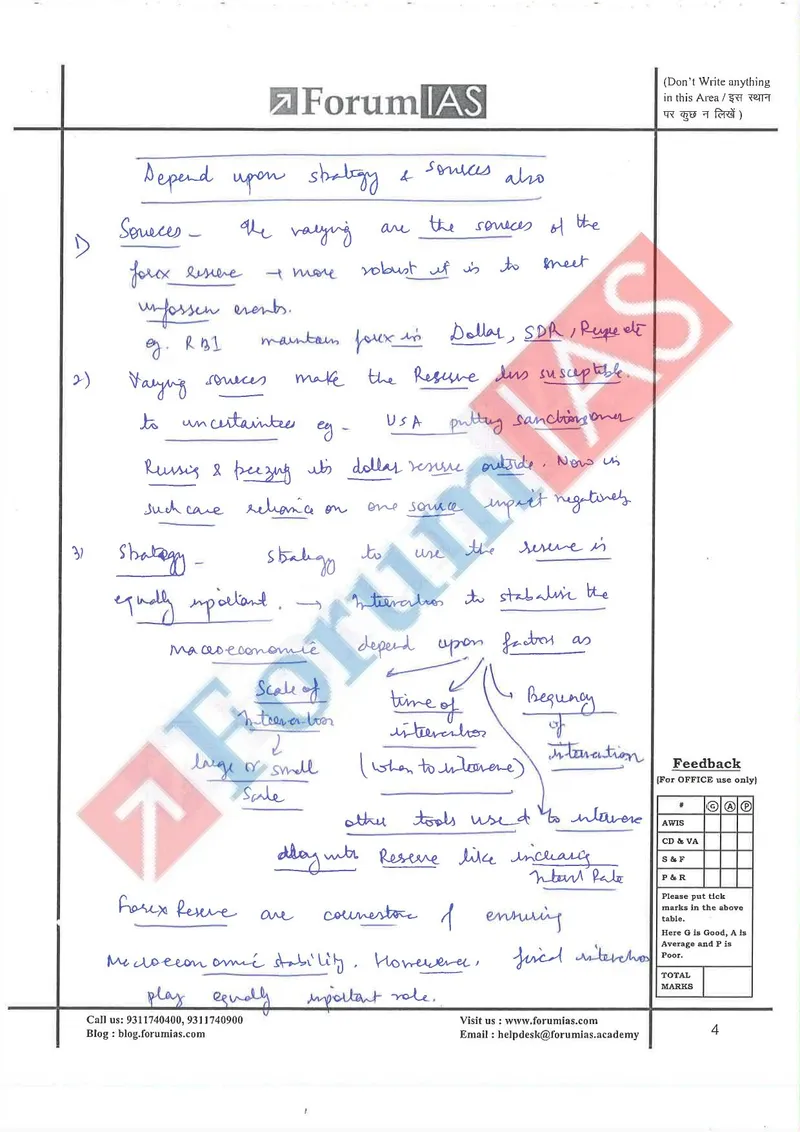 ForumIAS
(Don't Write anything
in this Area / इस स्थान
पर कुछ न लिखें )
Depend upon strategy & sources also
1) Sources - The varying are the sources of the
forex reserve → more robust it is to meet
unforseen events.
eg. RBI maintain forex in Dollar, SDR, Rupee etc
2) Varying sources make the Reserve less susceptible
to uncertainties eg - USA putting sanctions over
Russia & freezing its dollar reserve outside. Now in
such case reliance on one source impact negatively
3) Strategy - Strategy to use the reserve is
equally important. → Intervention to stabalise the
Macroeconomic depend upon factors as
Scale of
Intervention
large or small
Scale
time of
intervention
(when to intervene)
of
intervention
other tools used to intervene
Reserve like increasing
Interest Rate
Forex Reserve are of ensuring
Macroeconomic stability. However, fiscal intervention
play equally important role.
ForumIAS
Feedback
(For OFFICE use only)
# G A P
AWIS
CD & VA
S & F
P & R
Please put tick
marks in the above
table.
Here G is Good, A is
Average and P is
Poor.
TOTAL
MARKS
Call us: 9311740400, 9311740900
Blog : blog.forumias.com
Visit us : www.forumias.com
Email : helpdesk@forumias.academy
4